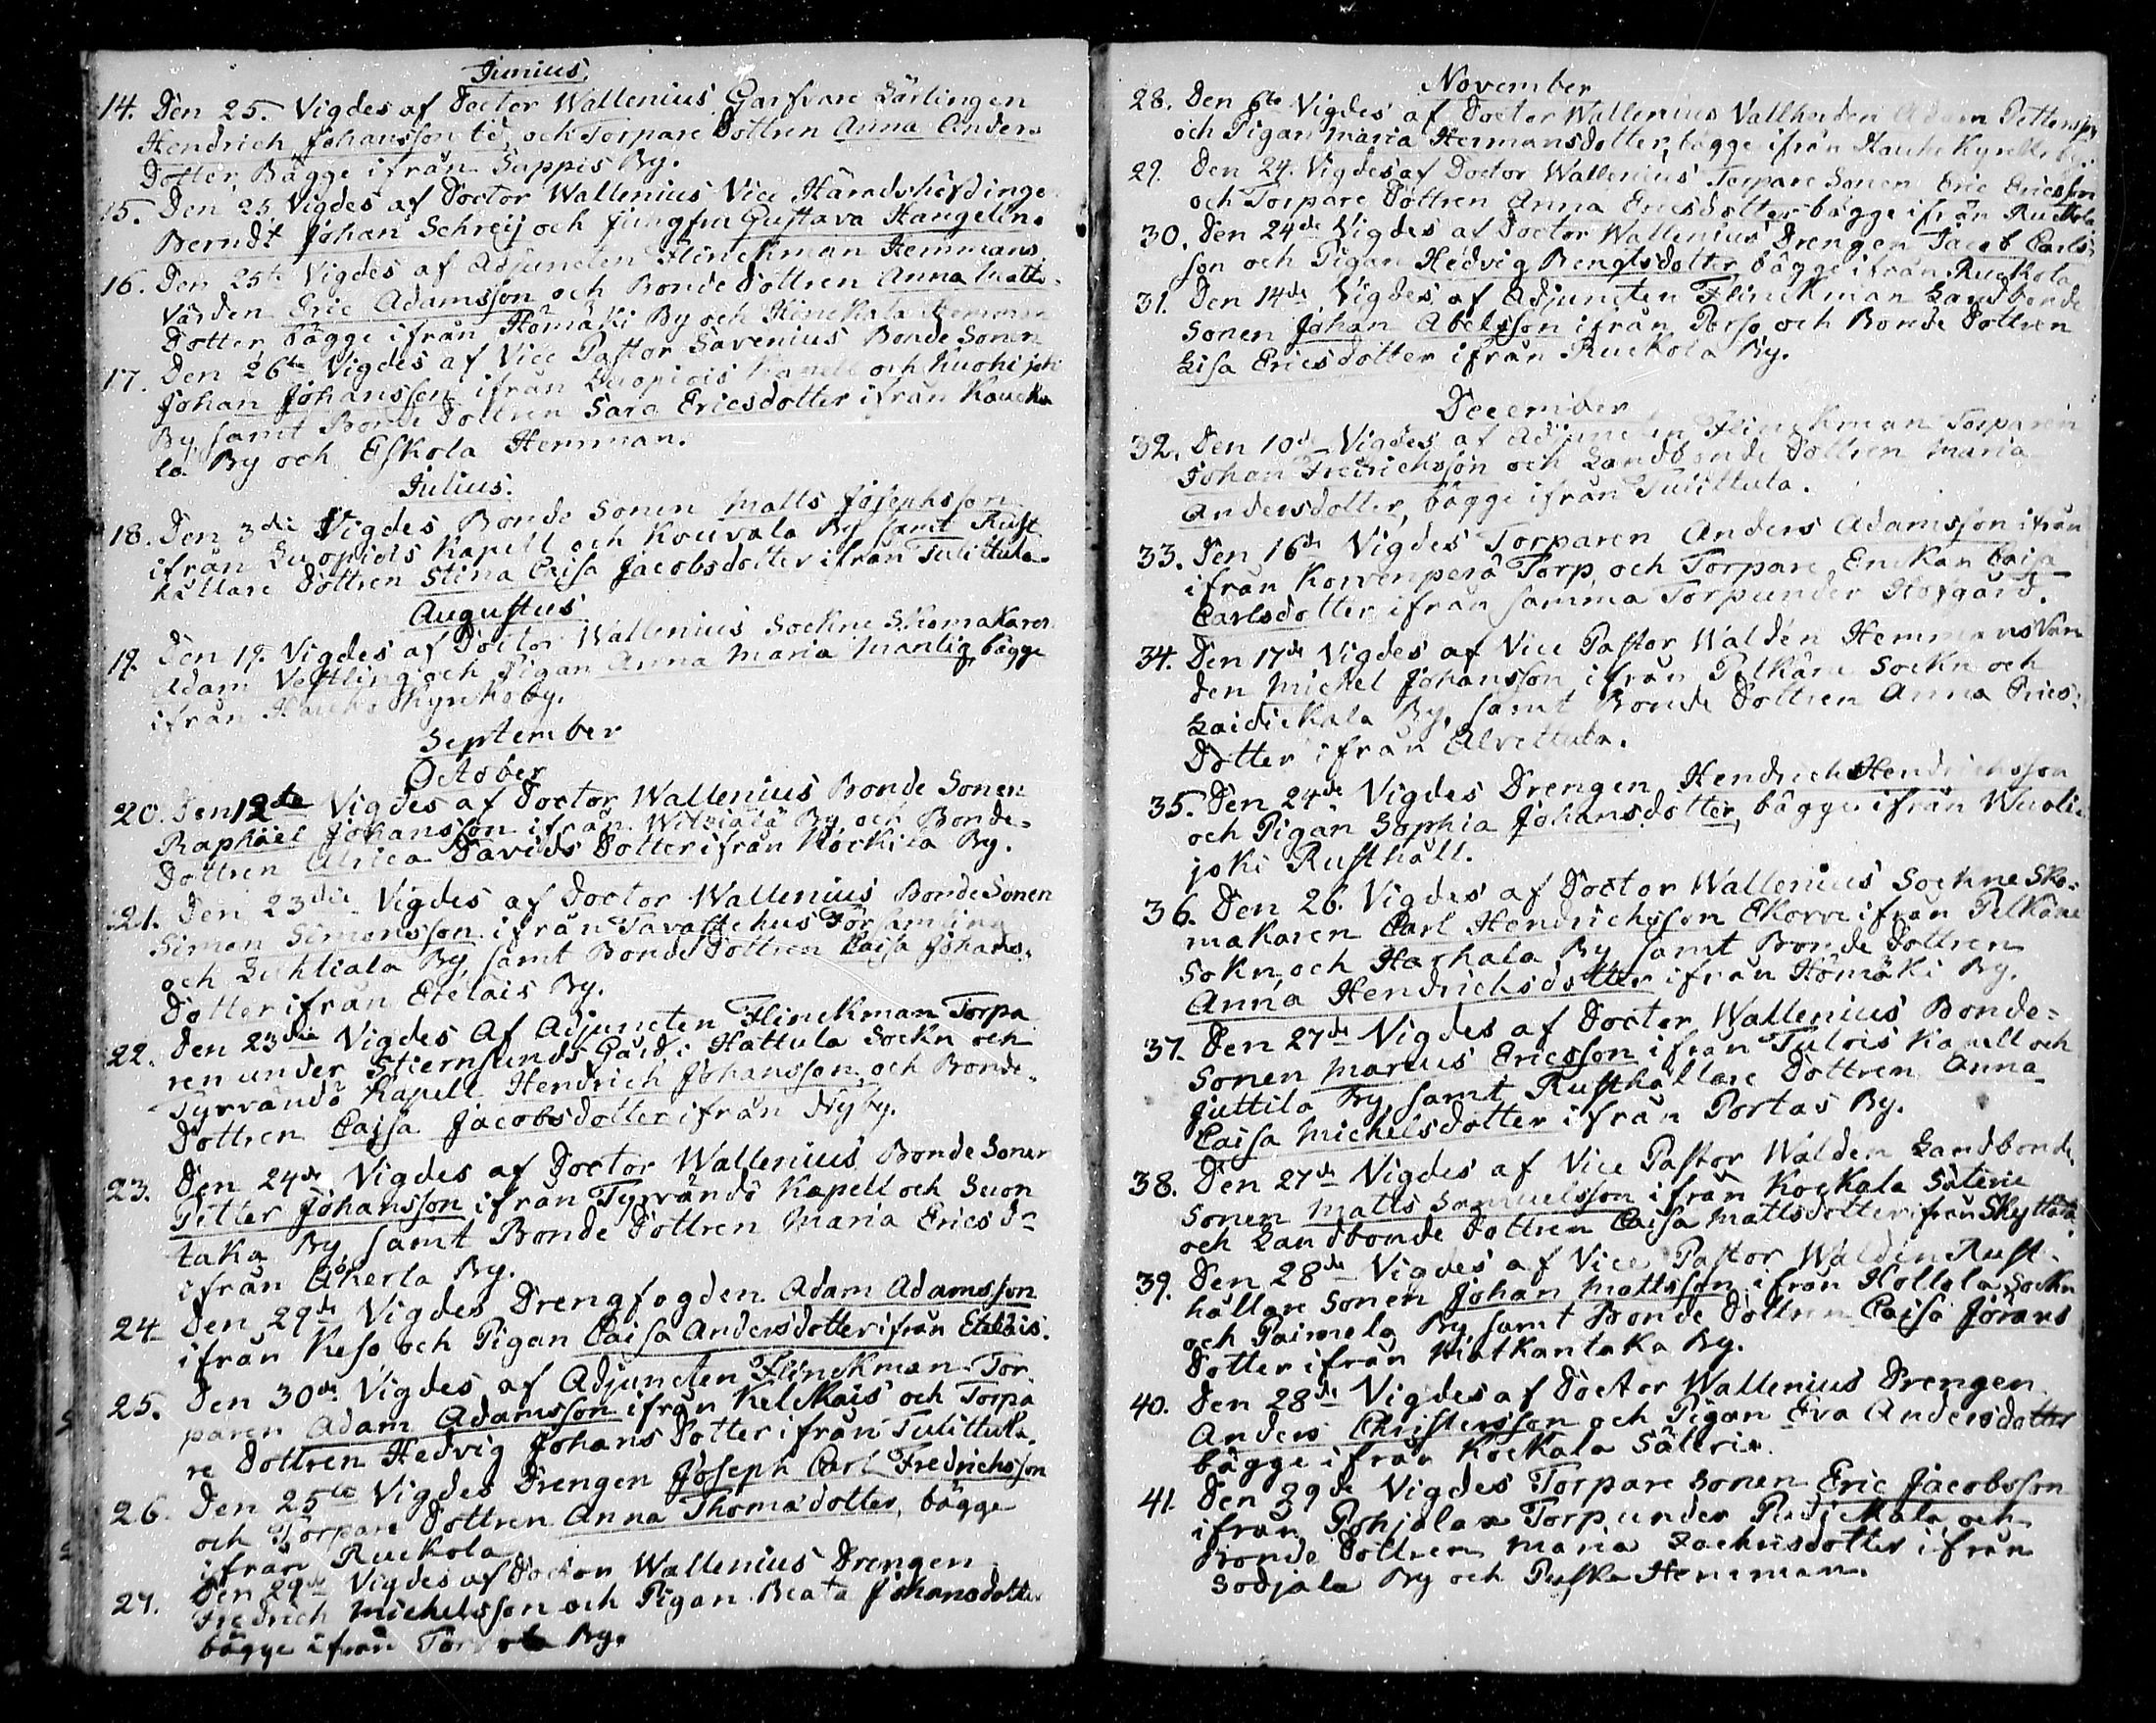 Junius.
14. Den 25. Vigdes af Doctor Wallenius Garfvare Lärlingen
Hendrich Johansson tid, och Torpare Dottren Anna Anders
Dotter, Bägge ifrån Sappis By.
15. Den 25 Vigdes af Doctor Wallenius Vice Häradshöfdinge
Berndt Johan Schreij och Jungfru Gustava Hangelin.
16. Den 25te Vigdes af Adjuncten Flinckman Hemmans
Värden Eric Adamsson och Bonde Dottren Anna Matts-
Dotter, bägge ifrån Hömäki By och Hemman
17. Den 26te Vigdes af Vice Pastor Savenius Bonde Sonen
Johan Johansson ifrån Luopiois Kapell och Kuohijoki
By, samt Bonde Dottren Sara Ericsdotter ifrån Kaucko
la By och Eskola Hemman.
Julius.
18. Den 3die Vigdes Bonde Sonen Matts Josephsson
ifrån Luopiois Kapell och Kouvala By samt Rust
hållare Dottren Stina Caisa Jacobsdotter ifrån Tulittula.
Augustus
19. Den 19. Vigdes af Doctor Wallenius Sockne Skomakaren
Adam Vestling och Pigan Anna Maria Manlig, bägge
ifrån Hauho Kyrckoby.
September
October
20. Den 12te Vigdes af Doctor Wallenius Bonde Sonen
Raphael Johansson ifrån Wilviala By och Bonde-
Dottren Ulrica Davids Dotter ifrån Kockila By.
21. Den 23die Vigdes af Doctor Wallenius Bonde Sonen
Simon Simonsson ifrån Tavastehus Församling
och Luhtiala By, samt Bonde Dottren Caisa Johans-
Dotter ifrån Etelais By.
22. Den 23die Vigdes Af Adjuncten Flinckman Torpa
ren under Stiernsunds Gård i Hattula Sockn och
Tyrvändö Kapell Hendrich Johansson och Bonde-
Dottren Caisa Jacobsdotter ifrån Nyby.
23. Den 24de Vigdes af Doctor Wallenius Bonde Sonen
Petter Johansson ifrån Tyrvändö Kapell och Suon
taka By, samt Bonde Dottren Maria Ericsdr
ifrån Åkerla By.
24. Den 29de Vigdes Drengfogden Adam Adamsson
ifrån Keso och Pigan Caisa Andersdotter ifrån Etelais.
25. Den 30de Vigdes af Adjuncten Flinckman Tor
paren Adam Adamsson ifrån Kelckais och Torpa
re Dottren Hedvig Johans Dotter ifrån Tulittula.
26. Den 25te Vigdes Drengen Joseph Carl Fredrichsson
och Torpare Dottren Anna Thomædotter, bägge
ifrån Ruckola.
27. Den 29de Vigdes af Doctor Wallenius Drengen
Fredrich Michelsson och Pigan Beata Johansdotter
bägge ifrån By.
November
28. Den 6te Vigdes af Doctor Wallenius Vallherden Adam Pettersson
och Pigan Maria Hermansdotter, bägge ifrån Hauho Kyrckoby.
29. Den 24. Vigdes af Doctor Wallenius Torpare Sonen Eric Ericsson
och Torpare Dottren Anna Ericsdotter bägge ifrån Ruckola
30. Den 24de Vigdes af Doctor Wallenius Drengen Jacob Carls-
son och Pigan Hedvig Bengtsdotter, bägge ifrån Ruckola
31. Den 14de Vigdes af Adjuncten Flinckman Landbonde
Sonen Johan Abelsson ifrån Porso och Bonde Dottren
Lisa Ericsdotter ifrån Ruckola By.
December
32. Den 10de Vigdes af Adjuncten Flinckman Torparen
Johan Fredrichsson och Landbonde Dottren Maria
Andersdotter, bägge ifrån Tulittula.
33. Den 16de Vigdes Torparen Anders Adamsson ifrån
ifrån Korvenperä Torp, och Torpare Enckan Caisa
Carlsdotter ifrån samma Torp under Hofgård.
34. Den 17de Vigdes af Vice Pastor Walden Hemmansvär
den Michel Johansson ifrån Pelkäne Sockn och
Laidickala By, samt Bonde Dottren Anna Erics-
Dotter ifrån Alvettula.
35. Den 24de Vigdes Drengen Hendrich Hendrichsson
och Pigan Sophia Johansdotter, bägge ifrån Wuoli-
joki Rusthåll.
36. Den 26. Vigdes af Doctor Wallenius Sockne Sko-
makaren Carl Hendrichsson Ekorre ifrån Pelkäne
Sokn, och Harhala By samt Bonde Dottren
Anna Hendrichsdotter ifrån Hömäki By.
37. Den 27de Vigdes af Doctor Wallenius Bonde-
Sonen Marcus Ericsson ifrån Tulois Kapell och
Juttila By, samt Rusthållare Dottren Anna
Caisa Michelsdotter ifrån Portas By.
38. Den 27de Vigdes af Vice Pastor Walden Landbonde
Sonen Matts Samuelsson ifrån Kockala Säterie
och Landbonde Dottren Caisa Mattsdotter ifrån Skyttälä
39. Den 28de Vigdes af Vice Pastor Walden Rust-
hållare Sonen Johan Mattsson ifrån Hollola Sockn
och Paimela By, samt Bonde Dottren Caisa Jörans
Dotter ifrån Matkantaka By.
40. Den 28de Vigdes af Doctor Wallenius Drengen
Anders Christersson och Pigan Eva Andersdotter
bägge ifrån Kockala Sätteri.
41. Den 29de Vigdes Torpare Sonen Eric Jacobsson
ifrån Pohjolan Torp under Och
Bonde Dottren Maria Zachrisdotter ifrån
Sodjala By och Puska Hemman.